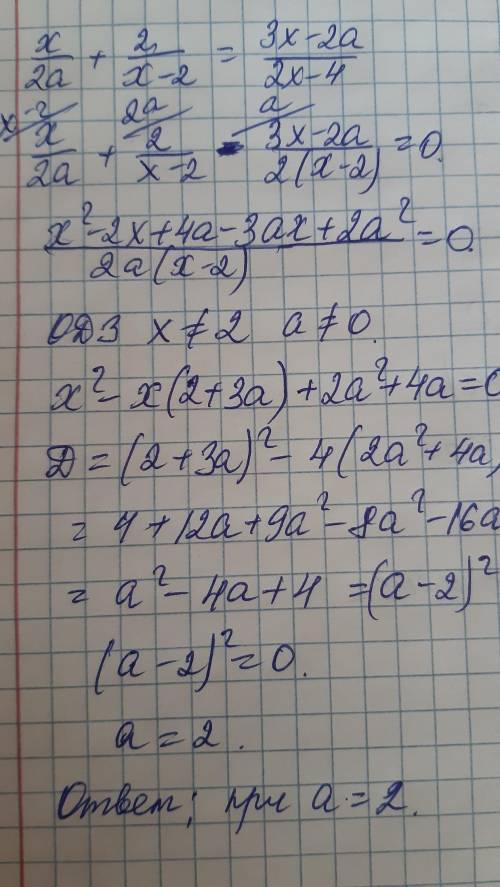 x/2a + 2/(x-2) = (3x-2a)/(2x-4)
x-2/ 2a/ a/
x/2a + 2/(x-2) - (3x-2a)/(2(x-2)) = 0.
(x²-2x+4a-3ax+2a²)/(2a(x-2)) = 0.
ОДЗ x ≠ 2 a ≠ 0.
x² - x(2+3a) + 2a² + 4a = 0
Д = (2+3a)² - 4(2a² + 4a)
= 4 + 12a + 9a² - 8a² - 16a
= a² - 4a + 4 = (a-2)²
(a-2)² = 0.
a = 2.
Ответ; при a = 2.